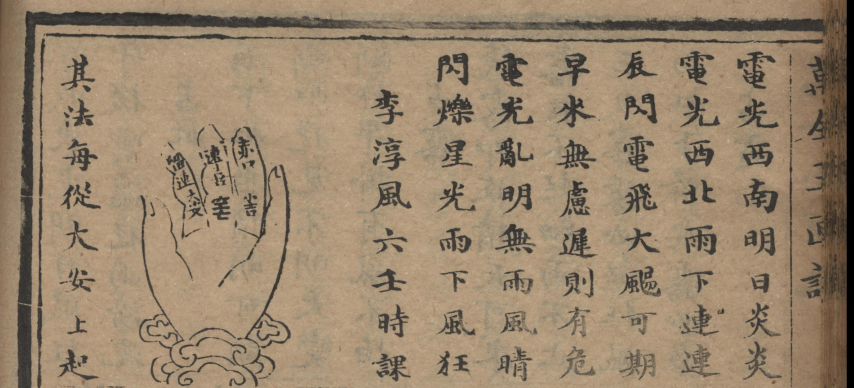 電光西南明日炎炎
電光西北雨下連連
辰閃電飛大颶可期
早來無慮遲則有危
電光亂明無雨風晴
閃爍星光雨下風狂
李淳風六壬時課
赤口
小吉
速喜
空亡
留連
大安
其法每從大安上起